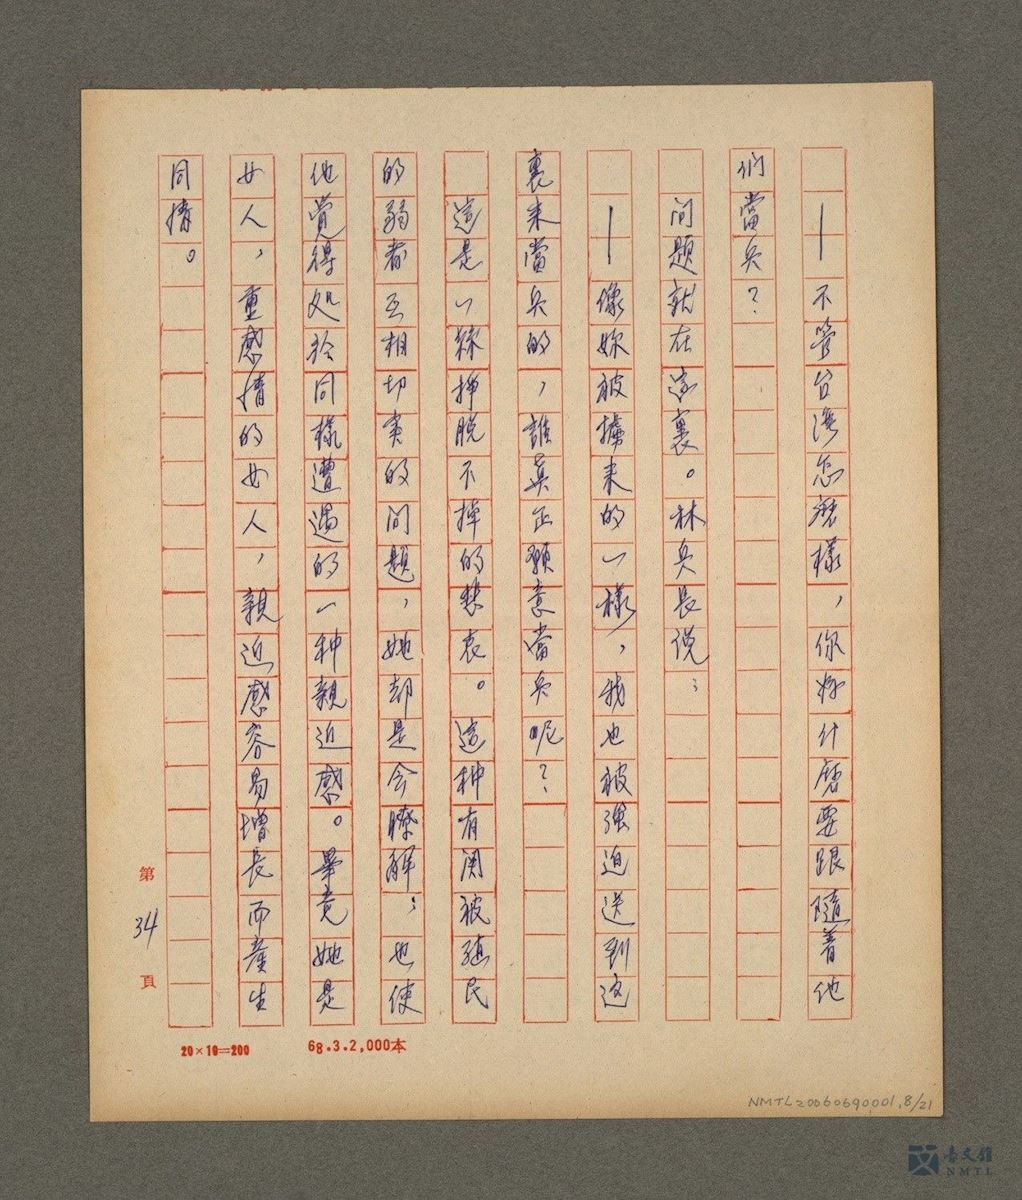 ——不管台湾怎麽樣，你好什麽要跟隨着他
们當兵？
问題就在這裏。林兵長说：
——像妳被擄来的一樣，我也被强迫送到这
裏来當兵的，誰真正願意當兵呢？
這是一種掙脱不掉的悲哀。這种有関被殖民
的弱者互相切实的问題，她却是今瞭解；也使
他覚得処於同樣遭遇的一种親近感。畢竟她是
女人，重感情的女人，親近感容易增長而産生
同情。
第34頁
20×10=200 68.3.2,000本
NMTL20060690001,8/21
台文館
NMTL